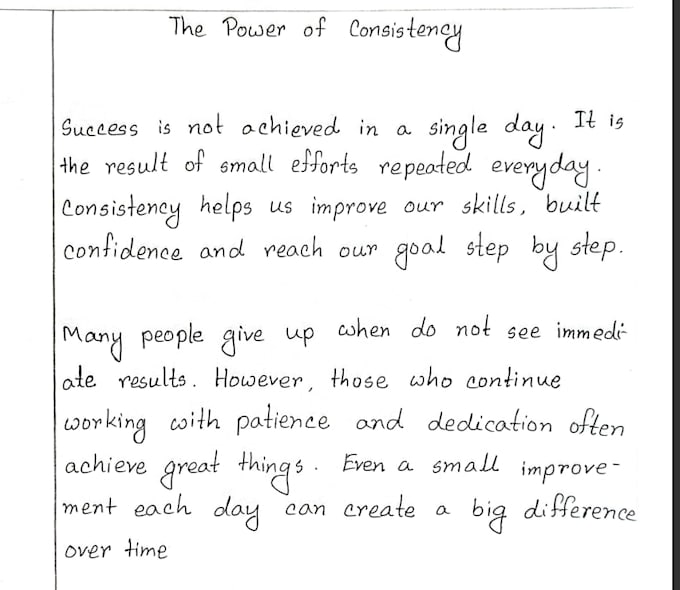 The Power of Consistency
Success is not achieved in a single day. It is
the result of small efforts repeated everyday.
Consistency helps us improve our skills, built
confidence and reach our goal step by step.
Many people give up when do not see immedi-
ate results. However, those who continue
working with patience and dedication often
achieve great things. Even a small improve-
ment each day can create a big difference
over time